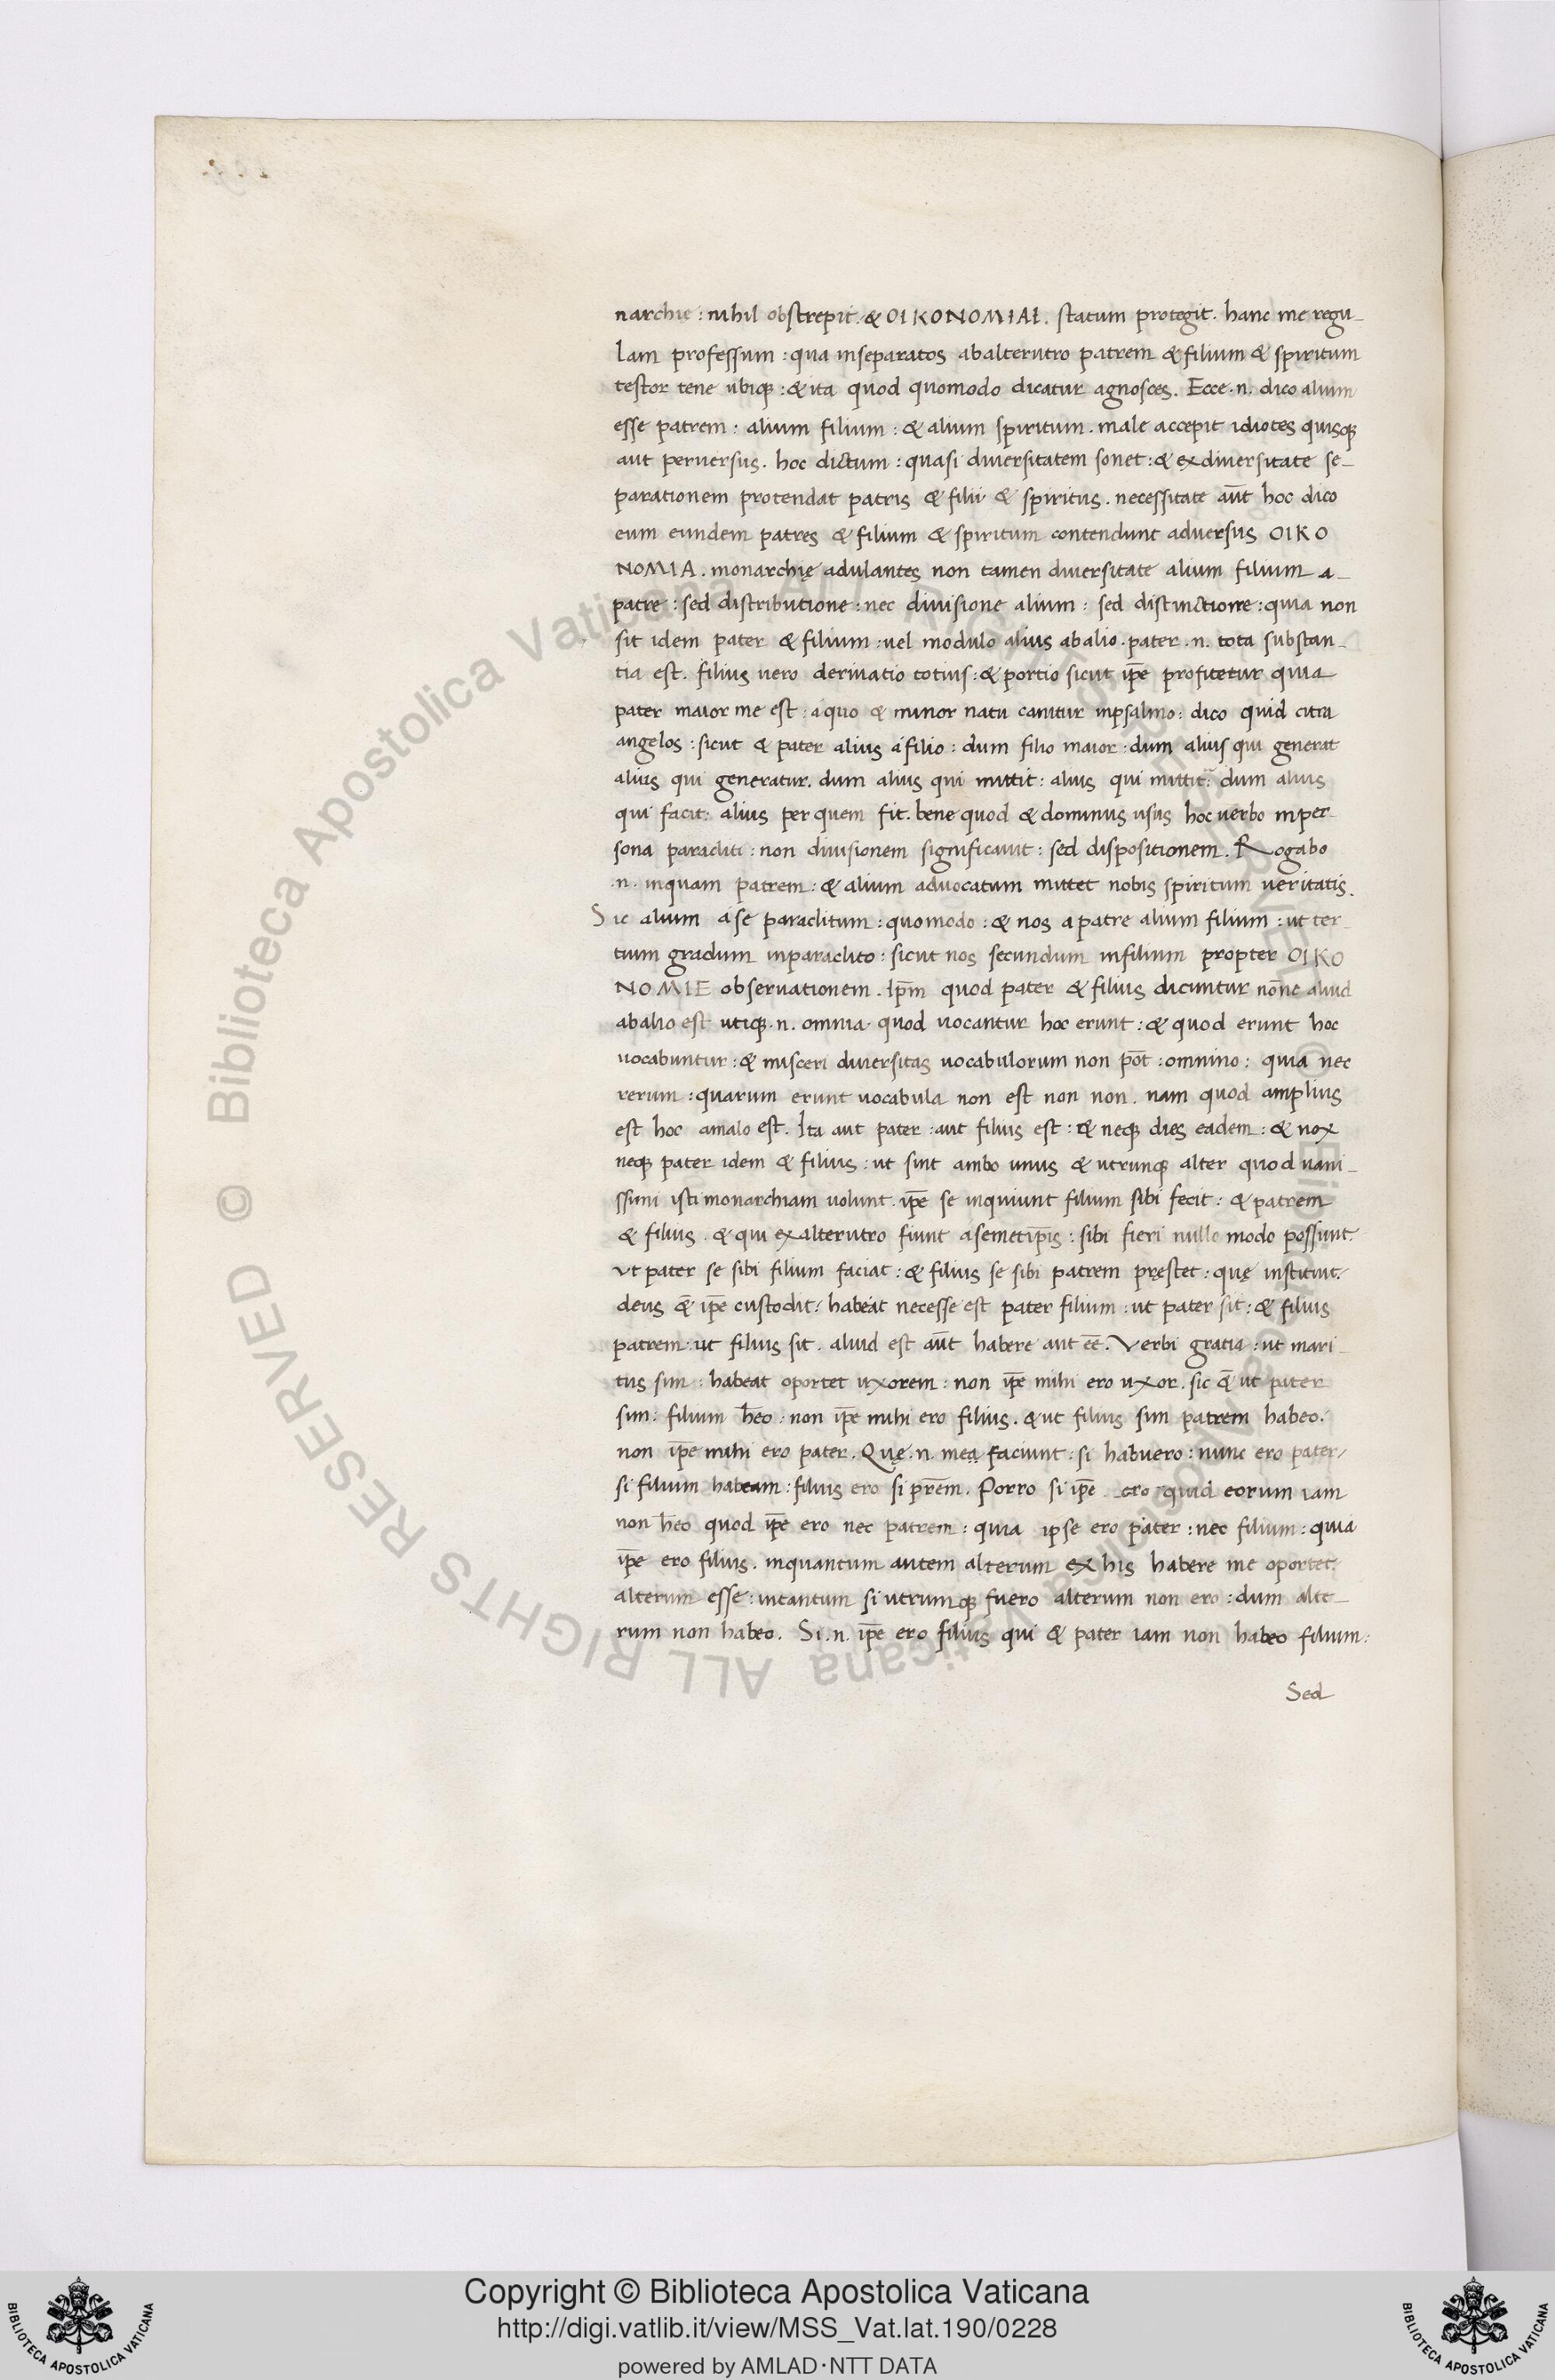 narchię : nihil obstrepit. & OIKONOMIAI. statum protegit. hanc me regu-
lam professum : qua inseparatos abalterutro patrem & filium & spiritum
testor tene ubiq; : & ita quod quomodo dicatur agnosces. Ecce .n. dico alium
esse patrem : alium filium : & alium spiritum. male accepit idiotes quisq;
aut perversus. hoc dictum : quasi diversitatem sonet : & exdiversitate se-
parationem protendat patris & filii & spiritus. necessitate aūt hoc dico
cum eundem patres & filium & spiritum contendunt adversus OIKO
NOMIA. monarchię adulantes non tamen diversitate alium filium a-
patre : sed distributione : nec divisione alium : sed distinctione : quia non
sit idem pater & filium : vel modulo alius abalio. pater .n. tota substan-
tia est. filius vero derivatio totius : & portio sicut ip̄e profitetur quia
pater maior me est : aquo & minor natu canitur inpsalmo : dico quid citra
angelos : sicut & pater alius a filio : dum filio maior : dum alius qui generat
alius qui generatur. dum alius qui mittit : alius qui mittit : dum alius
qui facit : alius per quem fit. bene quod & dominus usus hoc verbo inper-
sona paracliti : non divisionem significavit : sed dispositionem. Rogabo
.n. inquam patrem : & alium advocatum mittet nobis spiritum veritatis.
Sic alium ase paraclitum : quomodo : & nos apatre alium filium : ut ter-
tium gradum inparaclito : sicut nos secundum infilium propter OIKO
NOMIE observationem. Ip̄m quod pater & filius dicuntur nōne aliud
abalio est utiq; .n. omnia quod vocantur hoc erunt : & quod erunt hoc
vocabuntur : & misceri diversitas vocabulorum non pōt : omnino : quia nec
rerum : quarum erunt vocabula non est non non. nam quod amplius
est hoc amalo est. Ita aut pater : aut filius est : & neq; dies eadem : & nox
neq; pater idem & filius : ut sint ambo unus & utrunq; alter quod vani-
ssimi isti monarchiam volunt. ip̄e se inquiunt filium sibi fecit : & patrem
& filius. & qui exalterutro fiunt asemetip̄is : sibi fieri nullo modo possunt
ut pater se sibi filium faciat : & filius se sibi patrem pręstet : quę instituit.
deus & ip̄e custodit : habeat necesse est pater filium : ut pater sit : & filius
patrem : ut filius sit. aliud est aūt habere aut eē. Verbi gratia : ut mari-
tus sim : habeat oportet uxorem : non ip̄e mihi ero uxor. sic & ut pater
sim : filium h̄eo : non ip̄e mihi ero filius. & ut filius sim patrem habeo.
non ip̄e mihi ero pater. Quę .n. mea faciunt : si habuero : nunc ero pater/
si filium habeam : filius ero si pr̄em. Porro si ip̄e ero quid eorum iam
non h̄eo quod ip̄e ero nec patrem : quia ipse ero pater : nec filium : quia
ip̄e ero filius. inquantum autem alterum ex his habere me oportet
alterum esse : intantum si utrumq; fuero alterum non ero : dum alte-
rum non habeo. Si .n. ip̄e ero filius qui & pater iam non habeo filium :
Sed
© Biblioteca Apostolica Vaticana ALL RIGHTS RESERVED
Copyright © Biblioteca Apostolica Vaticana
http://digi.vatlib.it/view/MSS_Vat.lat.190/0228
powered by AMLAD·NTT DATA
BIBLIOTECA APOSTOLICA VATICANA
BIBLIOTECA APOSTOLICA VATICANA